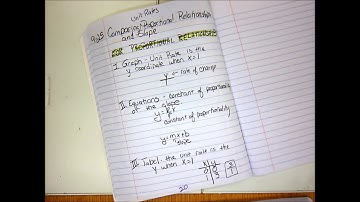 Unit Rates
9.25 Comparing Proportional Relationships
and Slope
PROPORTIONAL RELATIONSHIPS
I. Graph - Unit Rate is the
y coordinate when x=1
y ← rate of change
II. Equations - constant of proportionality
of the slope
y = kx
constant of proportionality
y = mx+b
slope
III. Tabel: the unit rate is the
y when x=1
x | y
20